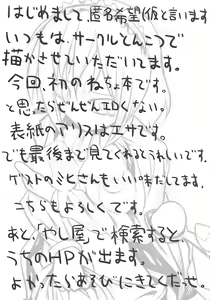 はじめまして、匿名希望(仮)と言います
いつもは、サークルとんこつで
描かさせていただいてます。
今回、初のねちょ本です。
と思ったらぜんぜんエロくない。
表紙のアリスはエサです。
でも最後まで見てくれるとうれしいです。
ゲストのミヒさんもいい味だしてます。
こちらもよろしくです。
あと、「やし屋」で検索すると、
うちのHPが出ます。
よかったらあそびにきてくだっせ。